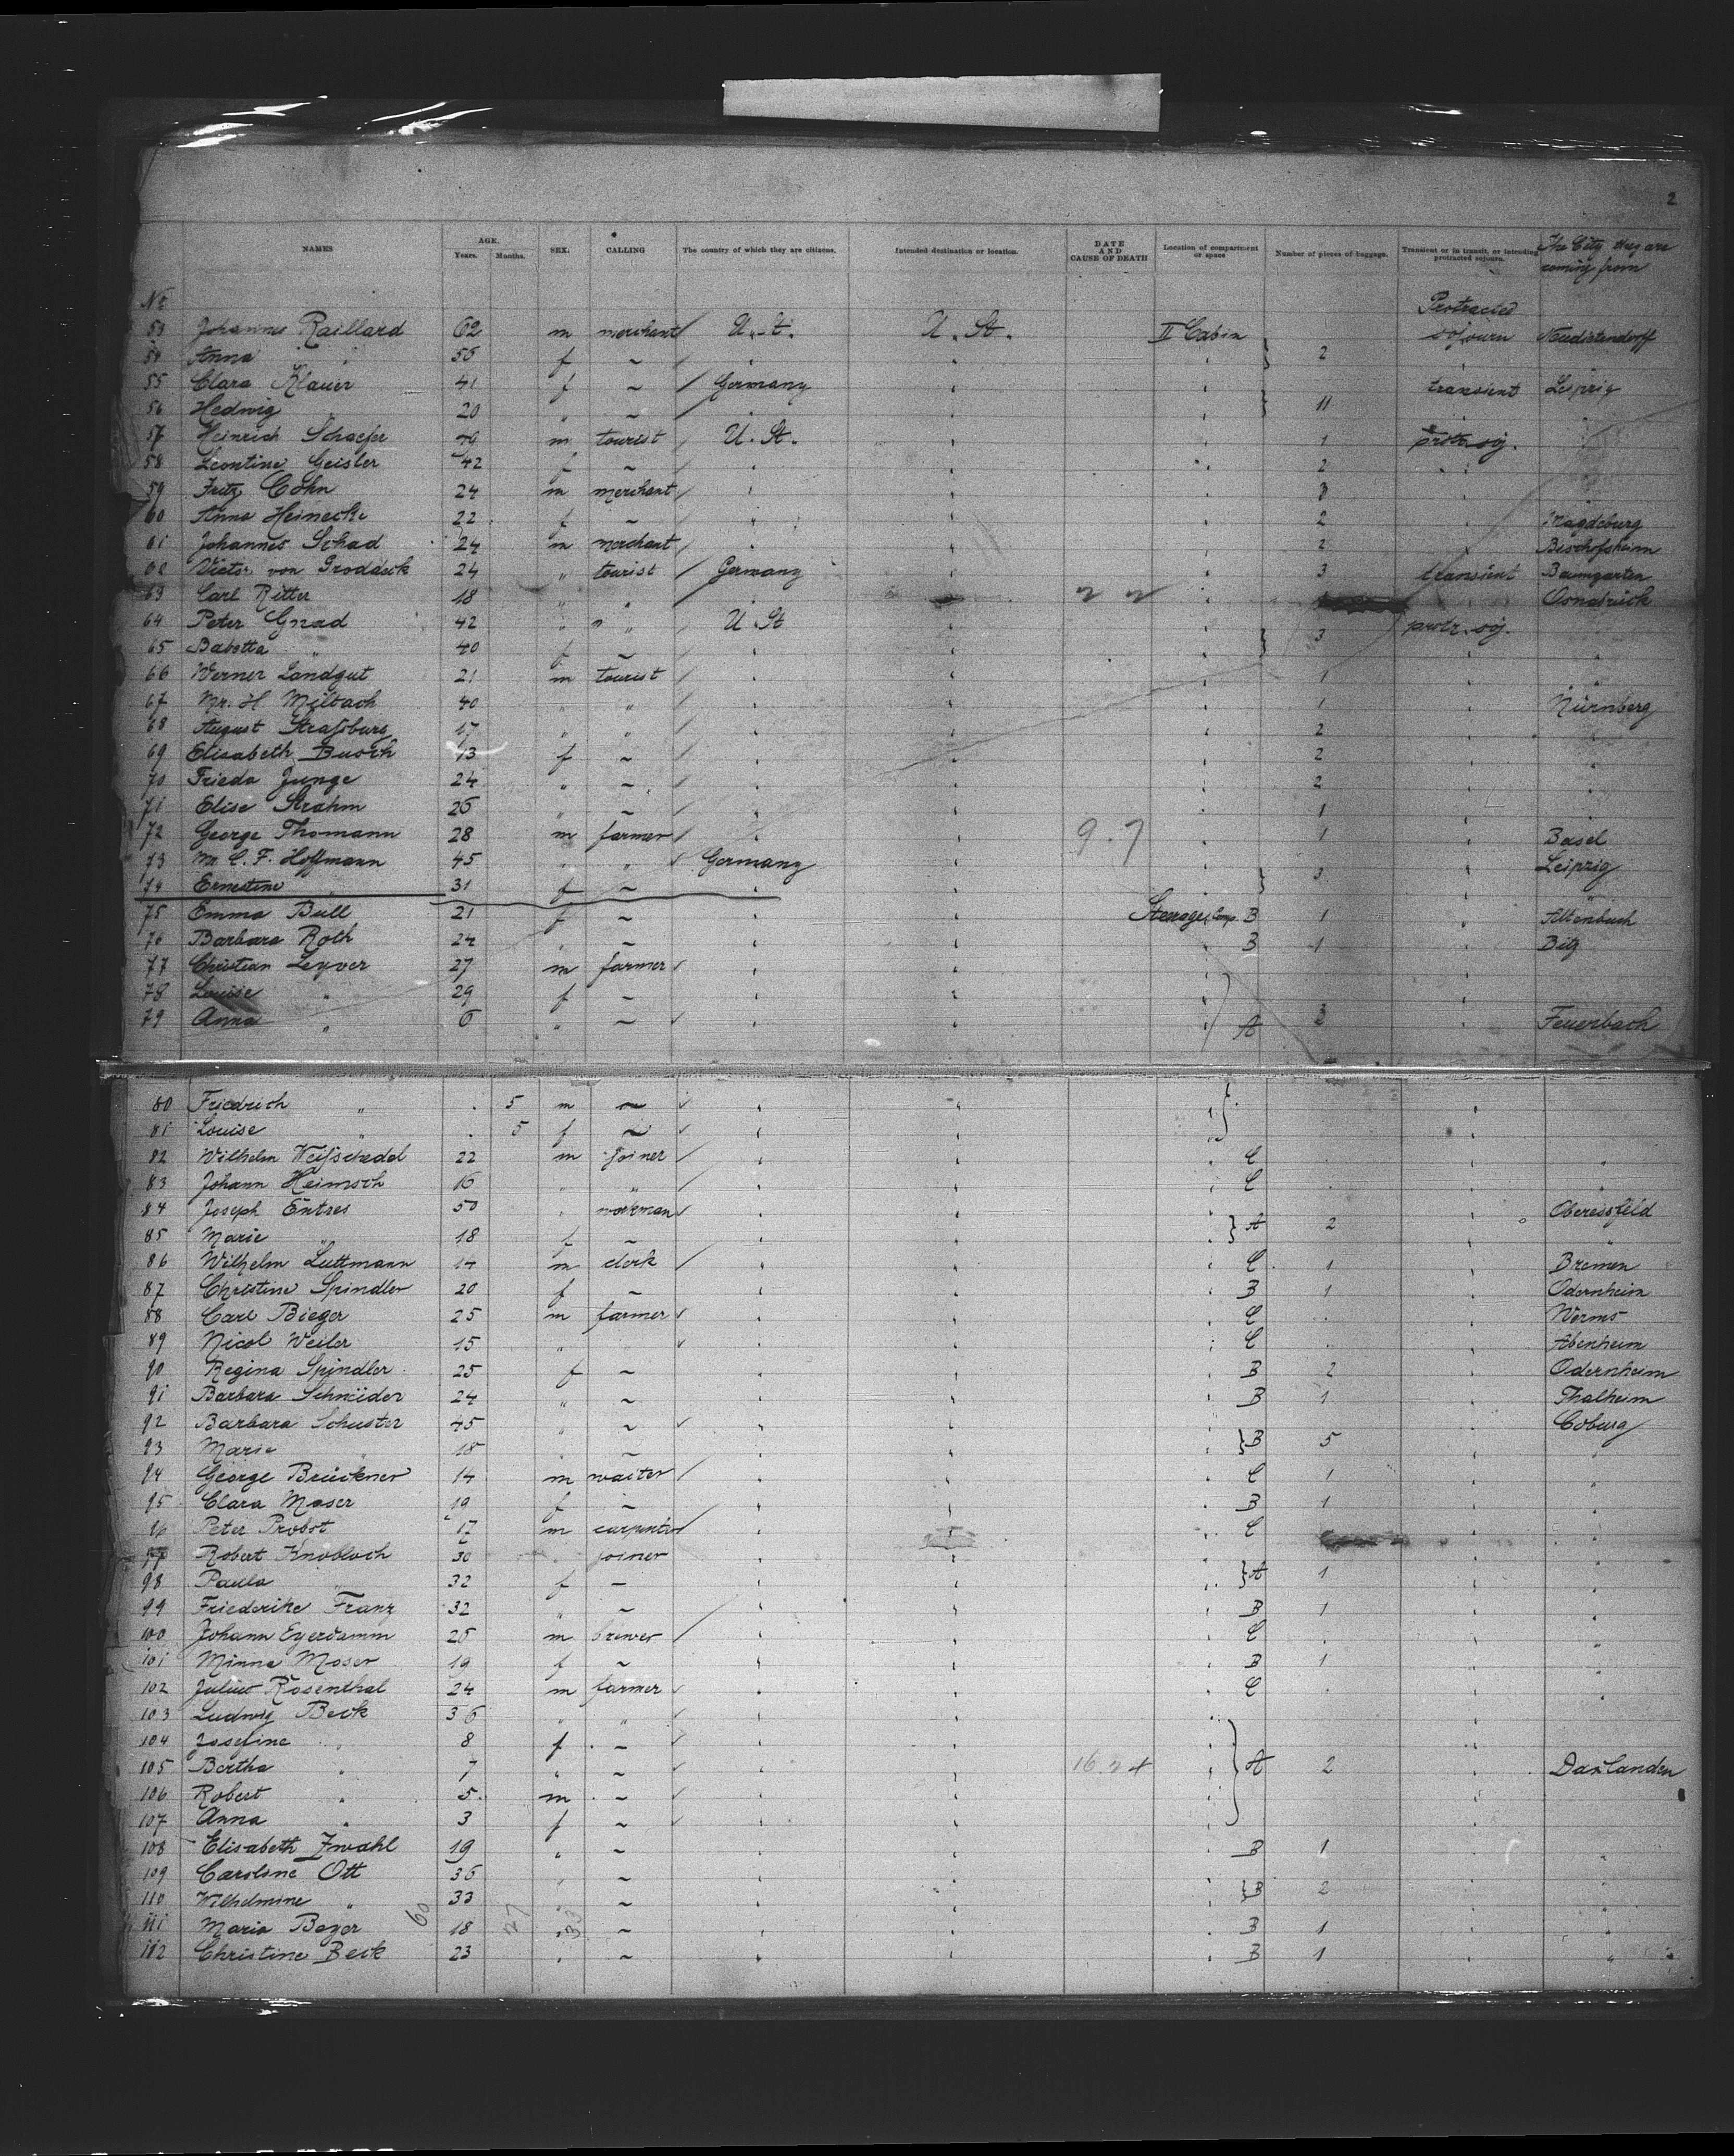 2
NAMES AGE. SEX. CALLING The country of which they are citizens. Intended destination or location. DATE AND CAUSE OF DEATH Location of compartment or space Number of pieces of baggage. Transient or in transit, or intending protracted sojourn. The City they are coming from
Years. Months.
No
53 Johannes Raillard 62 m merchant U. St. U. St. II Cabin Protracted sojourn
54 Anna " 56 f ~ " " " } 2 "
55 Clara Klauer 41 f ~ Germany " " transient Leipzig
56 Hedwig " 20 " ~ " " " } 11 " "
57 Heinrich Schaefer m tourist U. St. " " 1 protr. soj. "
58 Leontine Geisler 42 f ~ " " " 2 " "
59 Fritz Cohn 24 m merchant " " " " "
60 Anna Heinecke 22 f ~ " " " 2 " Magdeburg
61 Johannes Schad 24 m merchant " " " 2 " Bischofsheim
62 Victor von 24 " tourist Germany " " 3 transient Baumgarten
63 Carl Ritter 18 " " " " " " Osnabrück
64 Peter Gnad 42 " " U. St " " protr. soj. "
65 Babetta " 40 f ~ " " " } 3 " "
66 Werner Landgut 21 m tourist " " " 1 " "
67 Mr. H. Milbach 40 " " " " " 1 " Nürnberg
68 August Straßburg 17 " " " " " 2 " "
69 Elisabeth Busch f ~ " " " 2 " "
70 Frieda Junge 24 " ~ " " " 2 " "
71 Elise Strahm 26 " ~ " " " 1 " "
72 George Thomann 28 m farmer " " 9.7 " 1 " Basel
73 Mr. C. F. Hoffmann 45 " " Germany " " " Leipzig
74 Ernestine " 31 f ~ " " " } 3 " "
75 Emma Bull 21 f ~ " " Steerage, Comp. B 1 " Altenbuch
76 Barbara Roth 24 " ~ " " " B 1 " Bitz
77 Christian Leyver 27 m farmer " " " "
78 Louise " 29 f ~ " " " "
79 Anna " 6 " ~ " " " A 3 " Feuerbach
80 Friedrich " . 5 m ~ " " " "
81 Louise " . 5 f ~ " " " "
82 Wilhelm 22 m joiner " " " C . " "
83 Johann Heimsch 16 " " " " " C . " "
84 Joseph Entres 50 " workman " " " "
85 Marie " 18 f ~ " " " } A 2 " "
86 Wilhelm Luttmann 14 m clerk " " " C 1 " Bremen
87 Christine Spindler 20 f ~ " " " B 1 " Odernheim
88 Carl Bieger 25 m farmer " " " C . " Worms
89 Nicol Weiler 15 " " " " C . " Abenheim
90 Regina Spindler 25 f ~ " " " B 2 " Odernheim
91 Barbara Schneider 24 " ~ " " " B 1 " Thalheim
92 Barbara Schuster 45 " ~ " " " " Coburg
93 Marie " 18 " ~ " " " } B 5 " "
94 George Brückner 14 m waiter " " " C 1 " "
95 Clara Moser 19 f ~ " " " B 1 " "
96 Peter Probst 17 m carpenter " " " C " "
97 Robert Knobloch 30 " joiner " " " "
98 Paula " 32 f ~ " " " } A 1 " "
99 Friederike Franz 32 " ~ " " " B 1 " "
100 Johann Eyerdamm 25 m brewer " " " C . " "
101 Minna Moser 19 f ~ " " " B 1 " "
102 Julius Rosenthal 24 m farmer " " " C . " "
103 Ludwig Beck 36 " " " " " "
104 Josefine " 8 f ~ " " " "
105 Bertha " 7 " ~ " " 16.24 " } A 2 " Daxlanden
106 Robert " 5 m ~ " " " "
107 Anna " 3 f ~ " " " "
108 Elisabeth Zwahl 19 " ~ " " " B 1 " "
109 Caroline Ott 36 " ~ " " " "
110 Wilhelmine " 33 " ~ " " " } B 2 " "
111 Maria Beyer 60 18 27 " 33 ~ " " " B 1 " "
112 Christine Beck 23 " ~ " " " B 1 " "